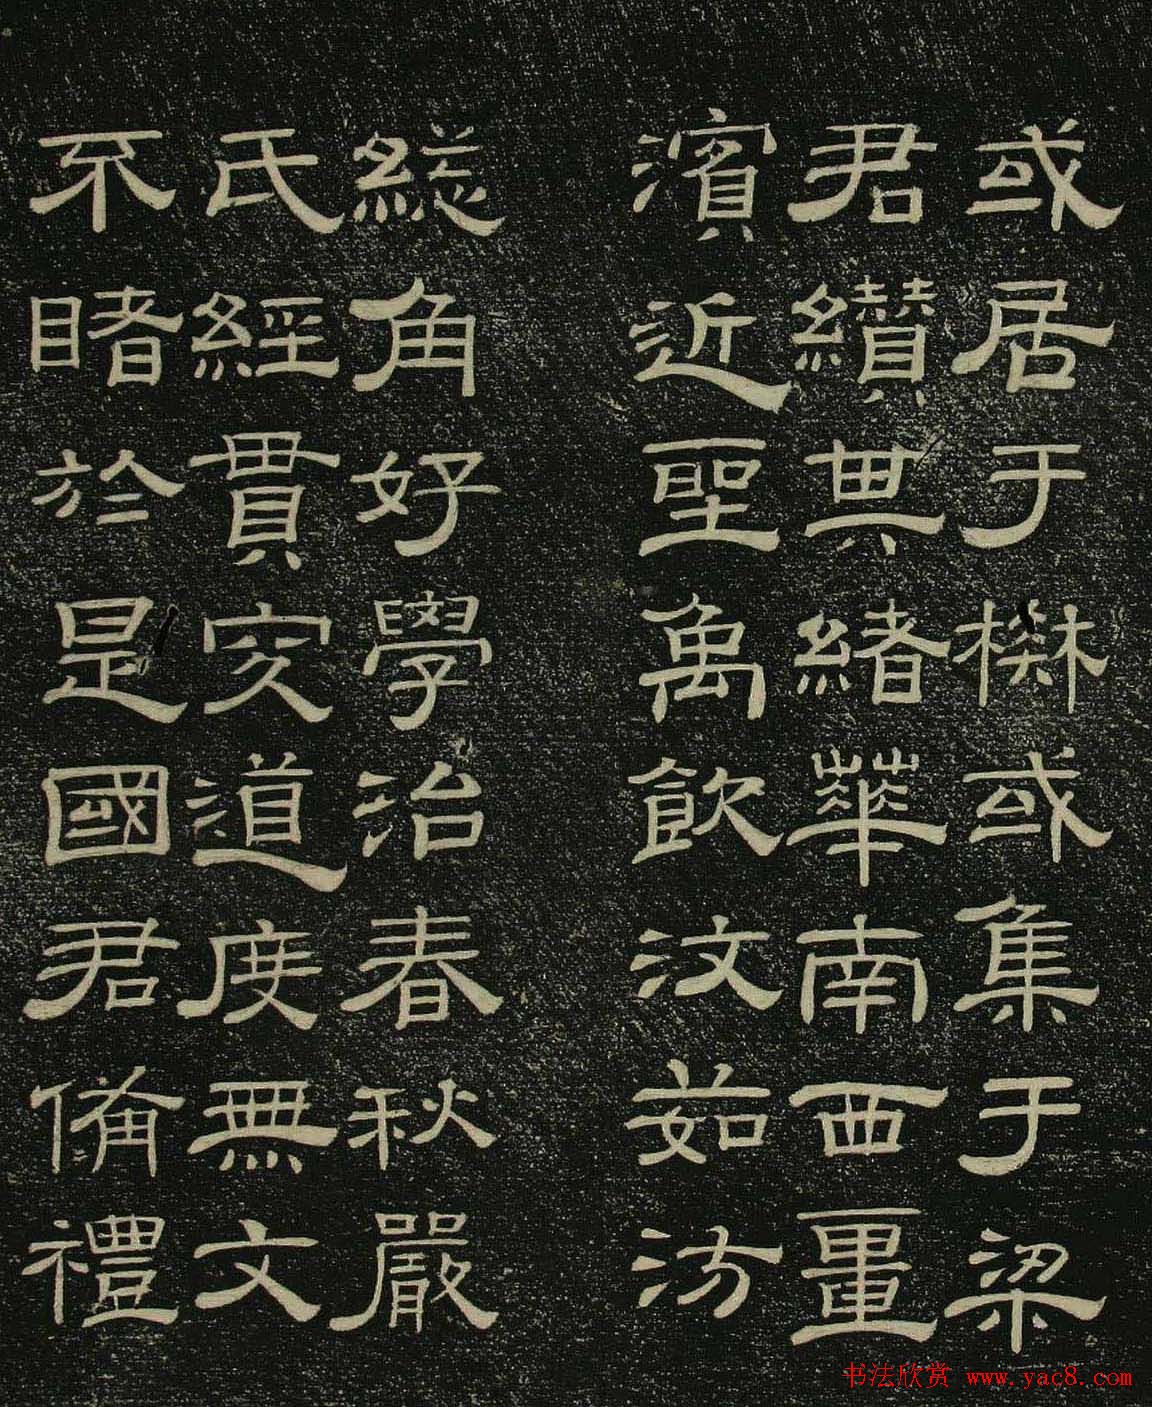 或居于樊或集于梁
君纘其緒華南西畺
濱近聖禹飲汶茹汸
総角好學治春秋嚴
氏經貫究道度無文
不睹於是國君備禮
书法欣赏 www.yac8.com